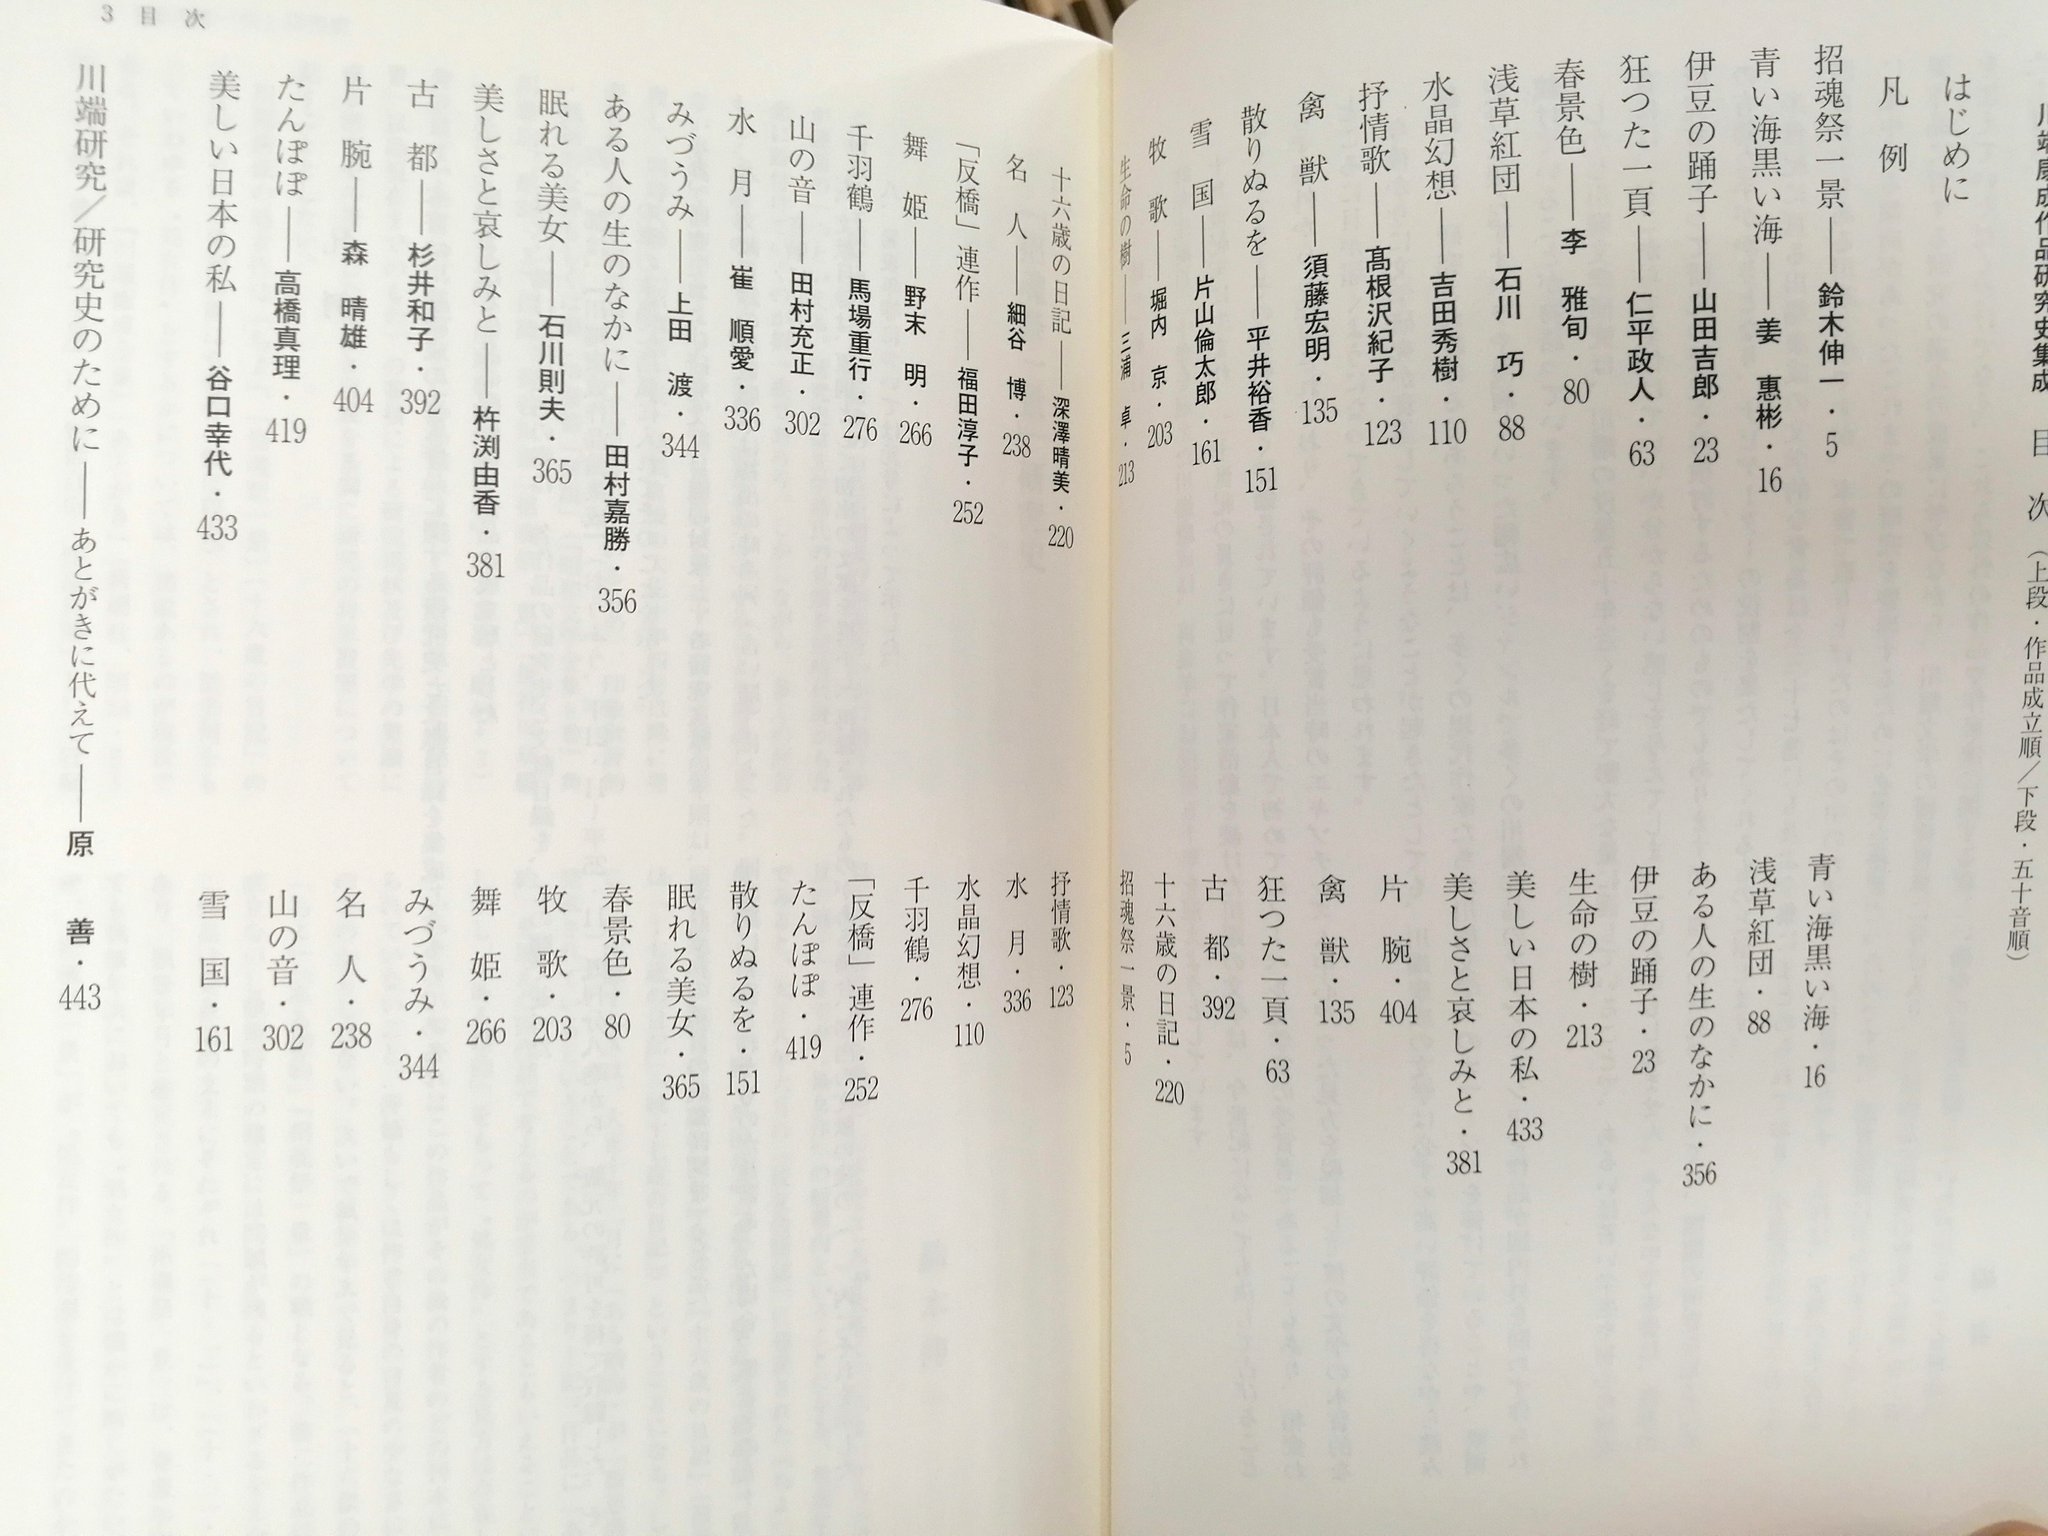 川端康成作品研究史集成　目　次　（上段・作品成立順／下段・五十音順）
はじめに
凡　例
招魂祭一景――鈴木伸一・5
青い海黒い海――姜　惠彬・16
伊豆の踊子――山田吉郎・23
狂つた一頁――仁平政人・63
春景色――李　雅旬・80
浅草紅団――石川　巧・88
水晶幻想――吉田秀樹・110
抒情歌――髙根沢紀子・123
禽　獣――須藤宏明・135
散りぬるを――平井裕香・151
雪　国――片山倫太郎・161
牧　歌――堀内　京・203
生命の樹――三浦　卓・213
青い海黒い海・16
浅草紅団・88
ある人の生のなかに・356
伊豆の踊子・23
生命の樹・213
美しい日本の私・433
美しさと哀しみと・381
片　腕・404
禽　獣・135
狂つた一頁・63
古　都・392
十六歳の日記・220
招魂祭一景・5
3　目　次
十六歳の日記――深澤晴美・220
名　人――細谷　博・238
「反橋」連作――福田淳子・252
舞　姫――野末　明・266
千羽鶴――馬場重行・276
山の音――田村充正・302
水　月――崔　順愛・336
みづうみ――上田　渡・344
ある人の生のなかに――田村嘉勝・356
眠れる美女――石川則夫・365
美しさと哀しみと――杵渕由香・381
古　都――杉井和子・392
片　腕――森　晴雄・404
たんぽぽ――高橋真理・419
美しい日本の私――谷口幸代・433
川端研究／研究史のために――あとがきに代えて――原　善・443
抒情歌・123
水　月・336
水晶幻想・110
千羽鶴・276
「反橋」連作・252
たんぽぽ・419
散りぬるを・151
眠れる美女・365
春景色・80
牧　歌・203
舞　姫・266
みづうみ・344
名　人・238
山の音・302
雪　国・161